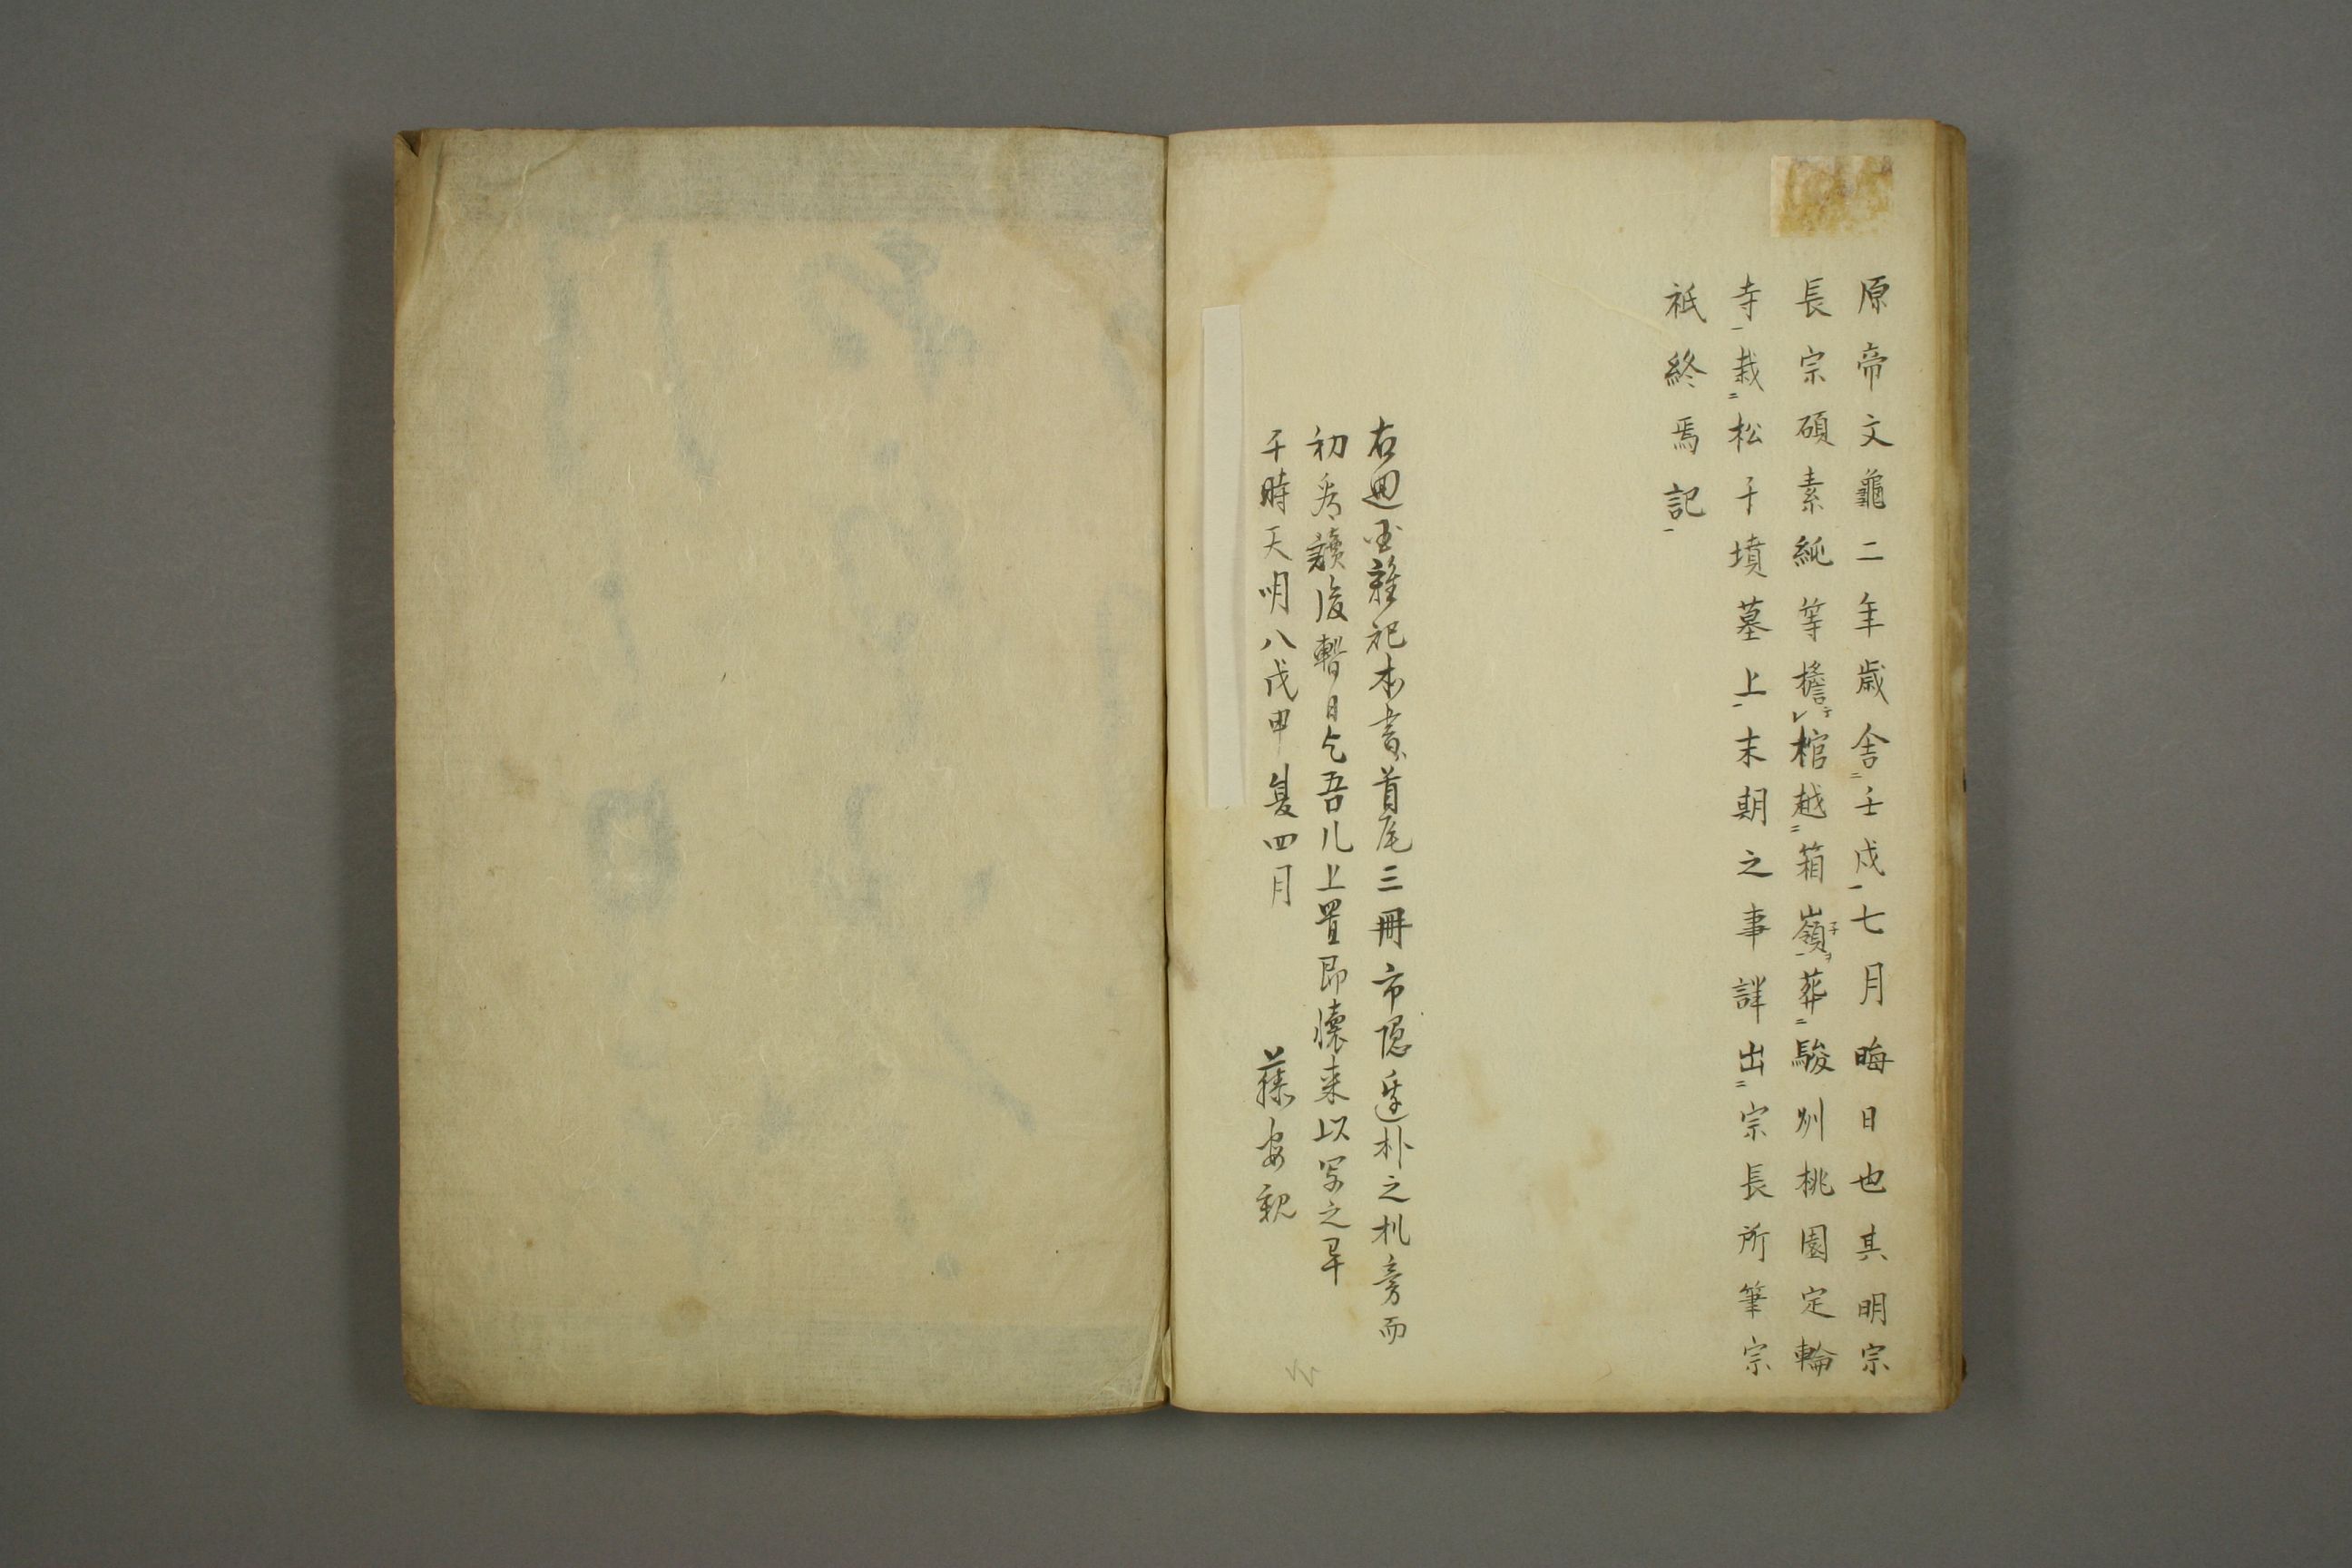 原帝文龜二年歳舎二壬戌一七月晦日也其明宗
長宗碩素純等擔テレ棺越二箱嶺子一ヲ葬二駿州桃園定輪
寺一栽二松于墳墓上一末朝之事詳出二宗長所筆宗
祇終焉記一
右廻国雑記本書首尾三冊市隠朴之机旁而
初秀讀後暫日乞吾几上置即懐来以写之畢
于時天明八戊申夏四月
藤安親